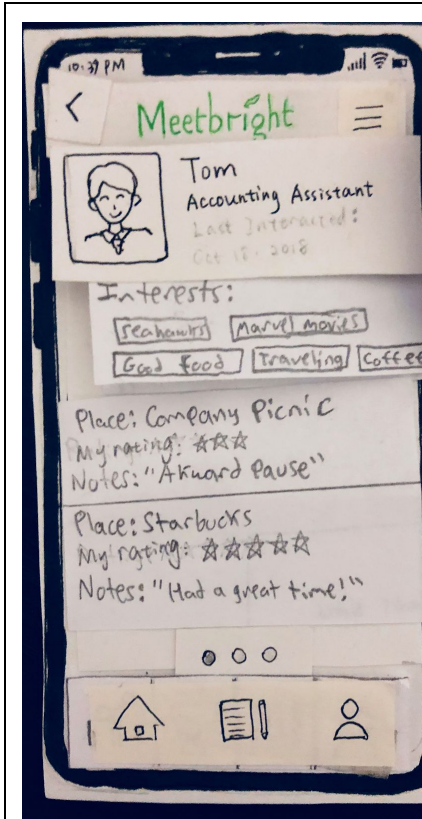 10:39 PM
Meetbright
Tom
Accounting Assistant
Last Interacted:
Oct 18. 2018
Interests:
Seahawks Marvel movies
Good food Traveling Coffee
Place: Company Picnic
My rating: ☆☆☆
Notes: "Akward Pause"
Place: Starbucks
My rating: ☆☆☆☆☆
Notes: "Had a great time!"